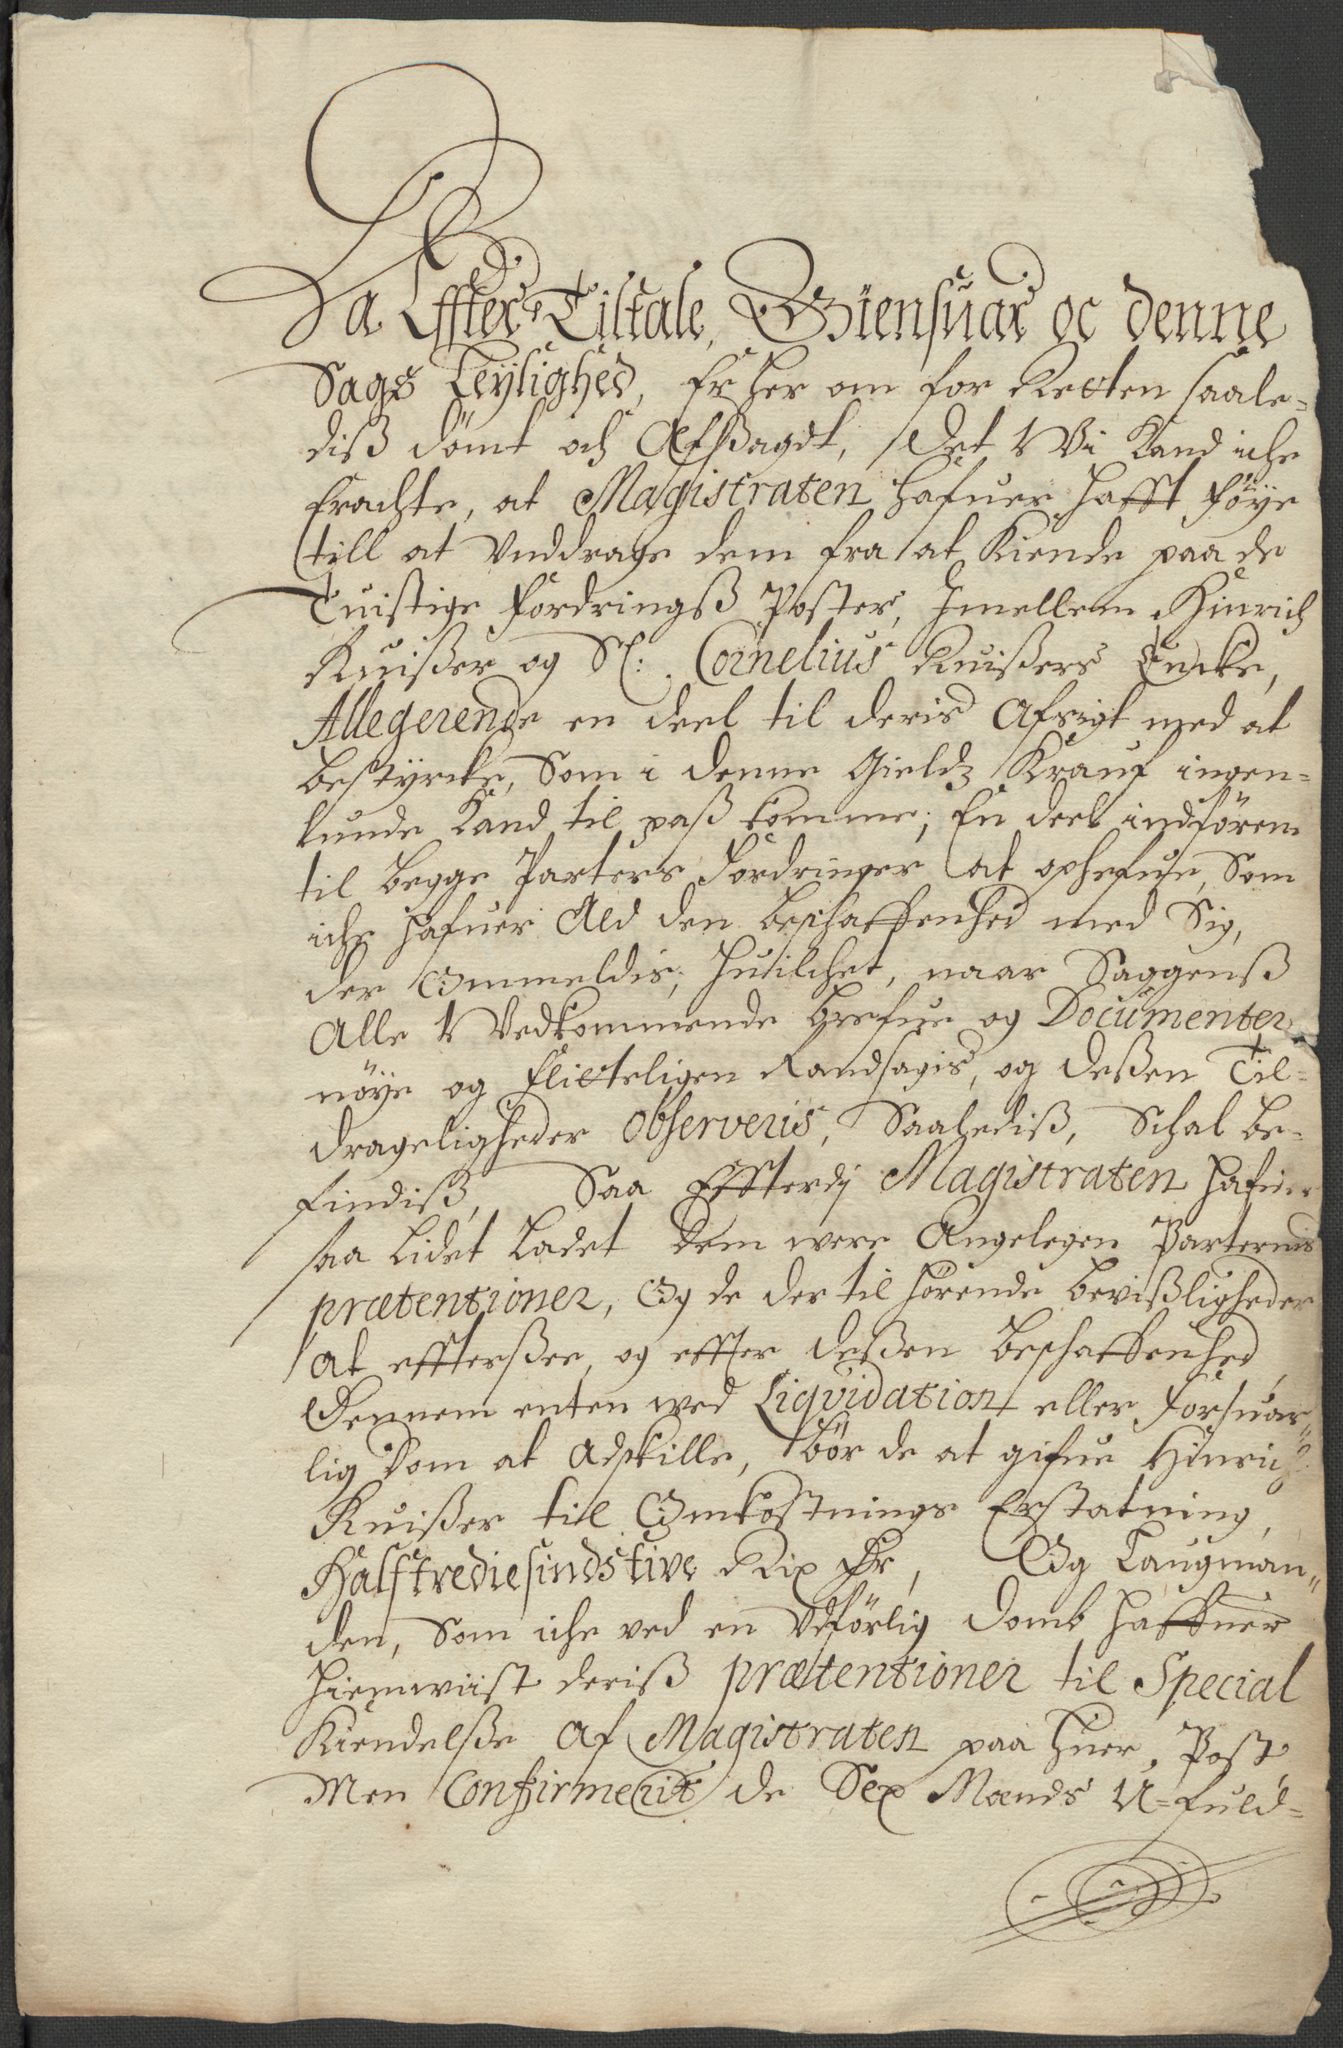 Da Effter Tiltale, Giensuar oc denne
Sags Leylighed, Er her om for Retten saale-
diß dömt och Afsagdt, Det Vi Kand iche
Erachte, at Magistraten hafuer hafft föye
till at Vnddrage dem fra at Kiende paa de
Tuistige Fordringß Poster, Imellem Hinrich
Kuißer og Sl: Cornelius Kuißers Encke,
Allegerende en deel til deris Afsigt med at
bestyrcke, Som i denne Gields Krauf ingen-
lunde Kand til paß komme; En deel indförem
til begge Parters Fordringer at ophefue, Som
iche hafuer Ald den beschaffenhed med Sig,
der Ommeldis; Huilchet, naar Saggenß
Alle Vedkommende Brefue og Documenter
nöye og flitteligen Randsagis, og deßen Til-
drageligheder Observeris, Saalediß, Schal be-
findiß, Saa Effterdj Magistraten hafuer
saa Lidet Ladet dem were Angelegen Parternis
prætentioner, Og de der til hörende bevißligheder
at effterßee, og effter deßen beschaffenhed
Dennem enten med Liqvidation eller forsuar-
lig Dom at Adskille, bör de at gifue Hinrich
Kuißer til Omkostnings Erstatning,
Halftrediesindstive Rix Dr, Og Laugman-
den, Som iche ved en Vdförlig Domb haffuer
hiemwiist deriß prætentioner til Special
Kiendelße af Magistraten paa huer Post
Men Confirmerit de Sex Mænds U-fuld-